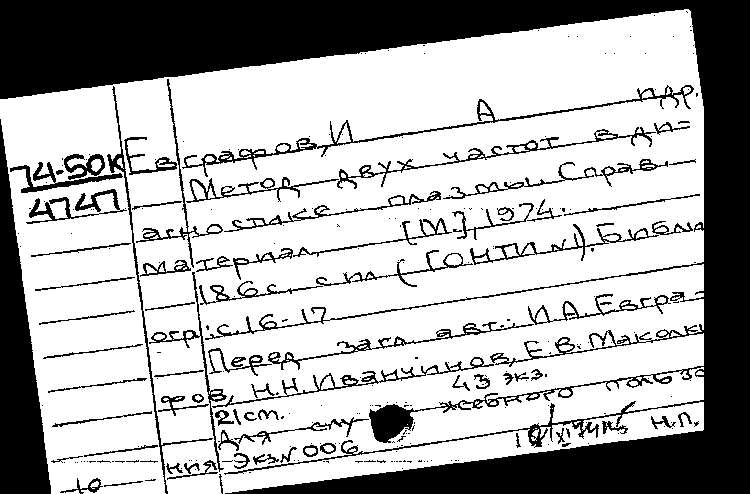 74-50к
4747
Евграфов, И А идр.
Метод двух частот в ди=
агностике плазмы. Справ.
материал. [М.], 1974.
186с. с ил (ГОНТИ №1). Библи
огр.: с.16-17
Перед загл. авт.: И.А. Евгра-
фов, Н.Н. Иванчинов, Е.В. Маколки
21ст. 43 экз.
Для слу жебного пользо
ния. Экз.№006
Н.П.
10